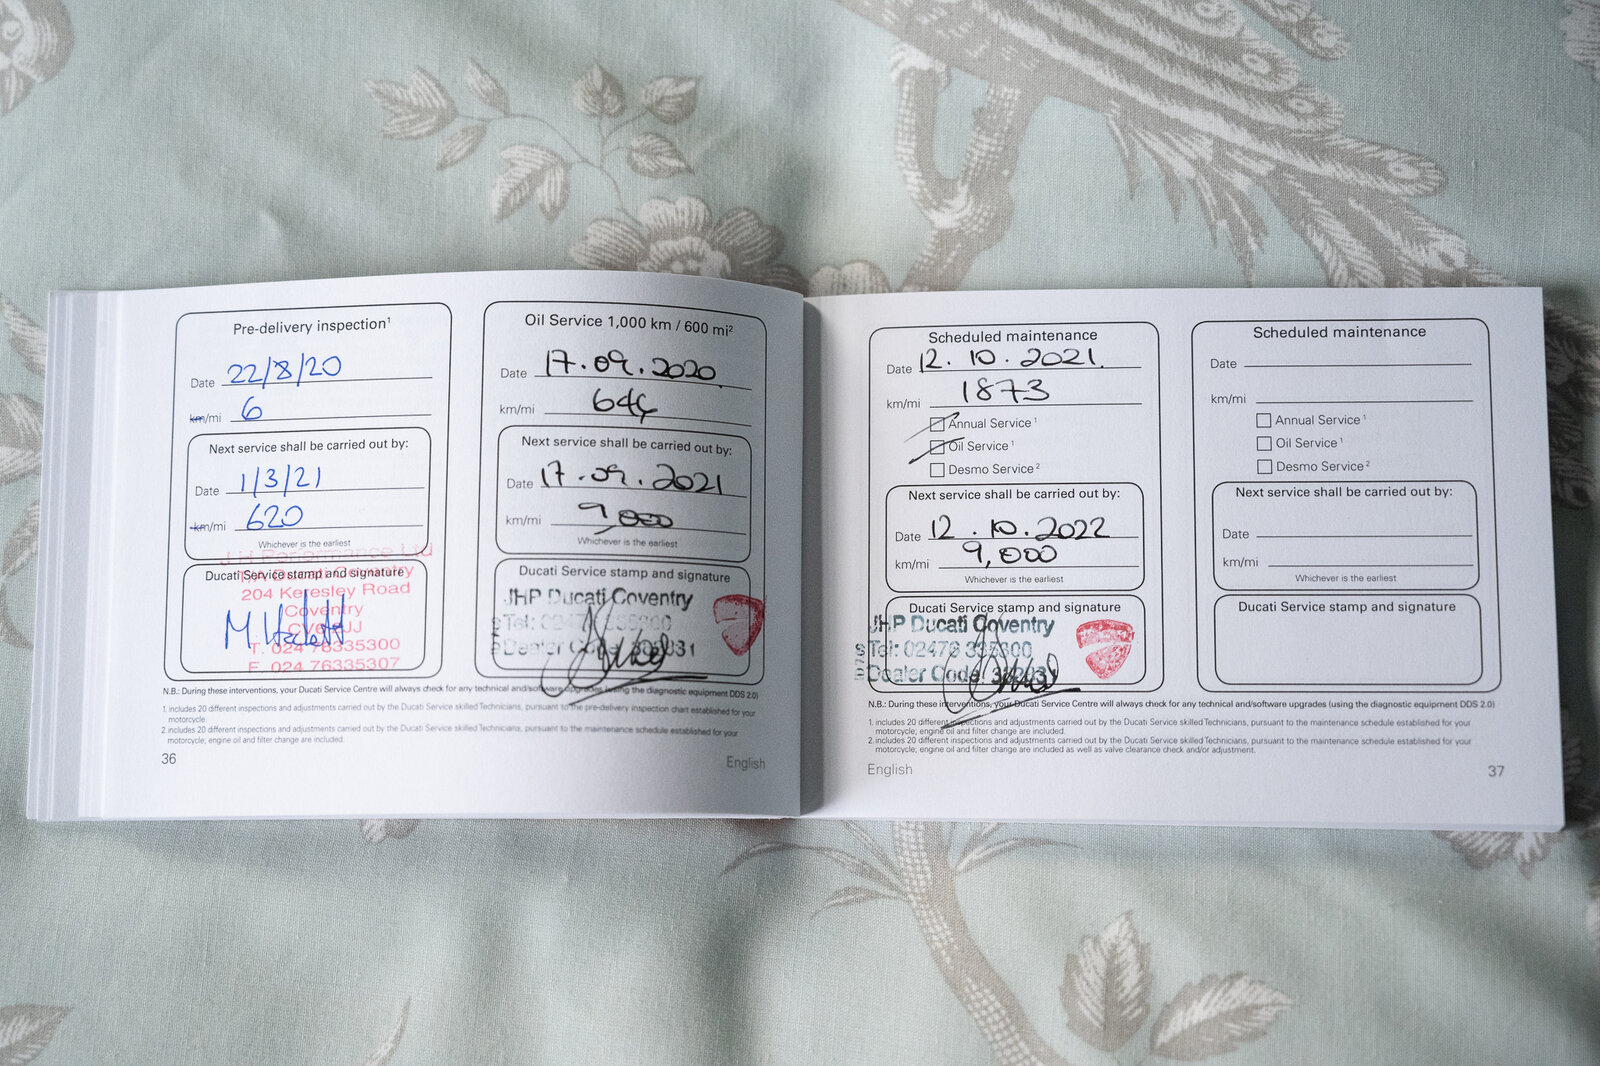 Pre-delivery inspection¹
Date 22/8/20
km/mi 6
Next service shall be carried out by:
Date 1/3/21
km/mi 620
Whichever is the earliest
Ducati Service stamp and signature
J H Performance Ltd
T/A Ducati Coventry
204 Keresley Road
Coventry
T. 024 76335300
F. 024 76335307
Oil Service 1,000 km / 600 mi²
Date 17.09.2020
km/mi 644
Next service shall be carried out by:
Date 17.09.2021
km/mi 9,000
Whichever is the earliest
Ducati Service stamp and signature
JHP Ducati Coventry
Tel: 02476 335300
Dealer Code
N.B.: During these interventions, your Ducati Service Centre will always check for any technical and/software upgrades (using the diagnostic equipment DDS 2.0)
1. includes 20 different inspections and adjustments carried out by the Ducati Service skilled Technicians, pursuant to the pre-delivery inspection chart established for your
motorcycle.
2. includes 20 different inspections and adjustments carried out by the Ducati Service skilled Technicians, pursuant to the maintenance schedule established for your
motorcycle; engine oil and filter change are included.
36
English
Scheduled maintenance
Date 12.10.2021
km/mi 1873
Annual Service¹
Oil Service¹
Desmo Service²
Next service shall be carried out by:
Date 12.10.2022
km/mi 9,000
Whichever is the earliest
Ducati Service stamp and signature
JHP Ducati Coventry
Tel: 02476 335300
Dealer Code
Scheduled maintenance
Date
km/mi
Annual Service¹
Oil Service¹
Desmo Service²
Next service shall be carried out by:
Date
km/mi
Whichever is the earliest
Ducati Service stamp and signature
N.B.: During these interventions, your Ducati Service Centre will always check for any technical and/software upgrades (using the diagnostic equipment DDS 2.0)
1. includes 20 different inspections and adjustments carried out by the Ducati Service skilled Technicians, pursuant to the maintenance schedule established for your
motorcycle; engine oil and filter change are included.
2. includes 20 different inspections and adjustments carried out by the Ducati Service skilled Technicians, pursuant to the maintenance schedule established for your
motorcycle; engine oil and filter change are included as well as valve clearance check and/or adjustment.
English
37